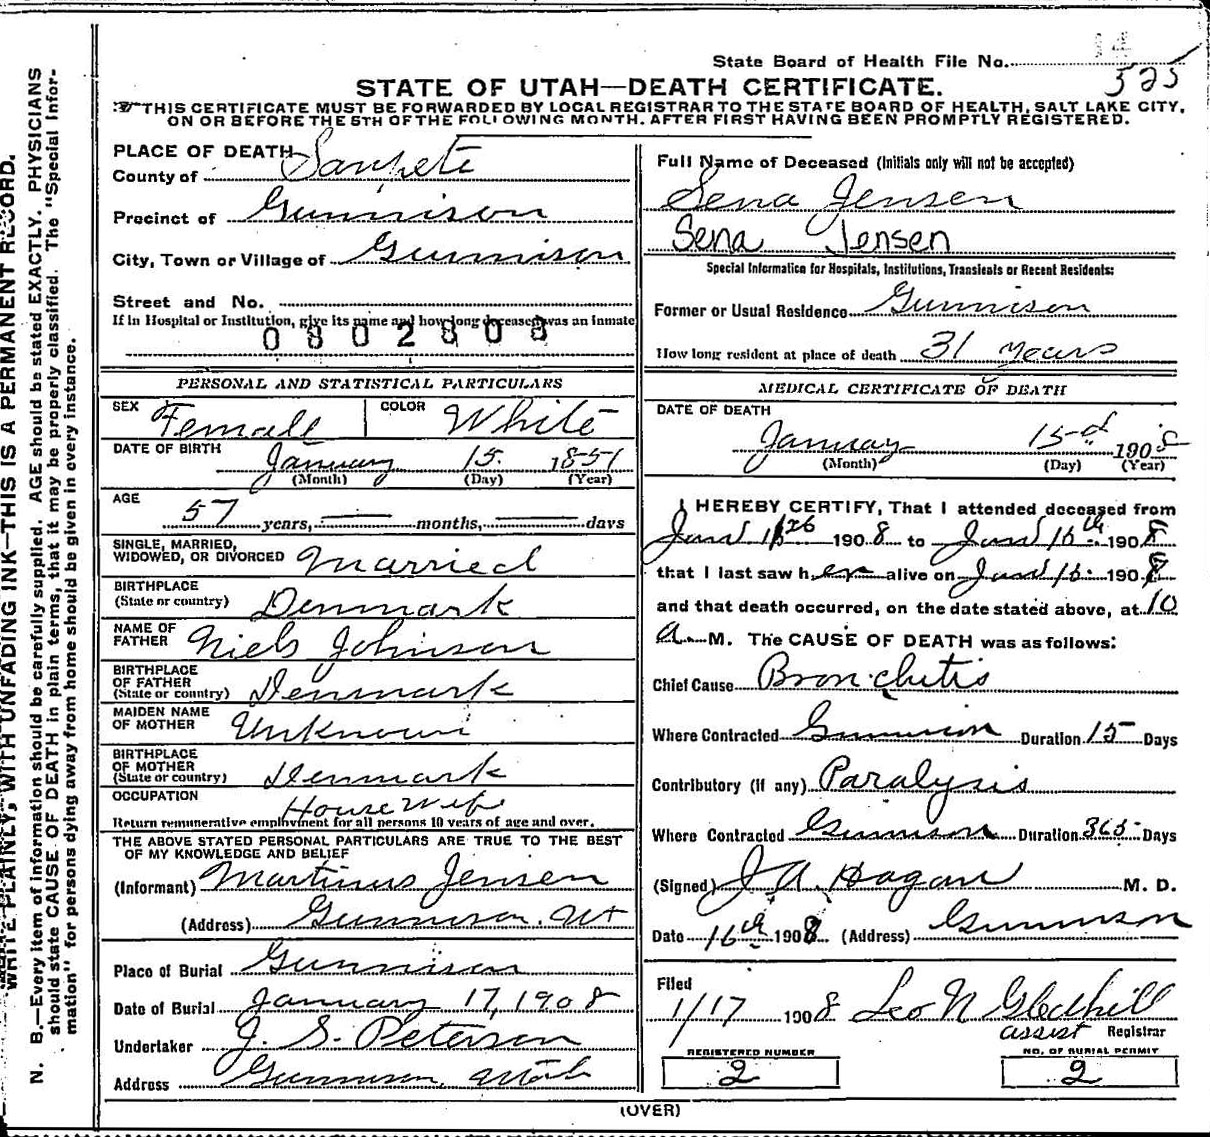 State Board of Health File No. 14
525
STATE OF UTAH—DEATH CERTIFICATE.
THIS CERTIFICATE MUST BE FORWARDED BY LOCAL REGISTRAR TO THE STATE BOARD OF HEALTH, SALT LAKE CITY,
ON OR BEFORE THE 5TH OF THE FOLLOWING MONTH. AFTER FIRST HAVING BEEN PROMPTLY REGISTERED.
WRITE PLAINLY, WITH UNFADING INK—THIS IS A PERMANENT RECORD.
N. B.—Every item of information should be carefully supplied. AGE should be stated EXACTLY. PHYSICIANS
should state CAUSE OF DEATH in plain terms, that it may be properly classified. The "Special Infor-
mation" for persons dying away from home should be given in every instance.
PLACE OF DEATH
County of Sanpete
Precinct of Gunnison
City, Town or Village of Gunnison
Street and No.
If in Hospital or Institution, give its name and how long deceased was an inmate
0802808
PERSONAL AND STATISTICAL PARTICULARS
SEX Female COLOR White
DATE OF BIRTH January 15 1851
(Month) (Day) (Year)
AGE
57 years, — months, — days
SINGLE, MARRIED,
WIDOWED, OR DIVORCED Married
BIRTHPLACE
(State or country) Denmark
NAME OF
FATHER Niels Johnson
BIRTHPLACE
OF FATHER
(State or country) Denmark
MAIDEN NAME
OF MOTHER Unknown
BIRTHPLACE
OF MOTHER
(State or country) Denmark
OCCUPATION House Wife
Return remunerative employment for all persons 10 years of age and over.
THE ABOVE STATED PERSONAL PARTICULARS ARE TRUE TO THE BEST
OF MY KNOWLEDGE AND BELIEF
(Informant) Martinus Jensen
(Address) Gunnison, Ut
Place of Burial Gunnison
Date of Burial January 17, 1908
Undertaker J. S. Peterson
Address Gunnison, Utah
Full Name of Deceased (Initials only will not be accepted)
Sena Jensen
Sena Jensen
Special Information for Hospitals, Institutions, Transients or Recent Residents:
Former or Usual Residence Gunnison
How long resident at place of death 31 years
MEDICAL CERTIFICATE OF DEATH
DATE OF DEATH
January 15 1908
(Month) (Day) (Year)
I HEREBY CERTIFY, That I attended deceased from
1908 to 1908
that I last saw her alive on 1908
and that death occurred, on the date stated above, at 10
a. M. The CAUSE OF DEATH was as follows:
Chief Cause Bronchitis
Where Contracted Gunnison Duration 15 Days
Contributory (if any) Paralysis
Where Contracted Gunnison Duration 365 Days
(Signed) J A. Hagan M. D.
Date 16th 1908 (Address) Gunnison
Filed
1/17 1908 Leo N Gledhill
assist Registrar
REGISTERED NUMBER
2
NO. OF BURIAL PERMIT
2
(OVER)